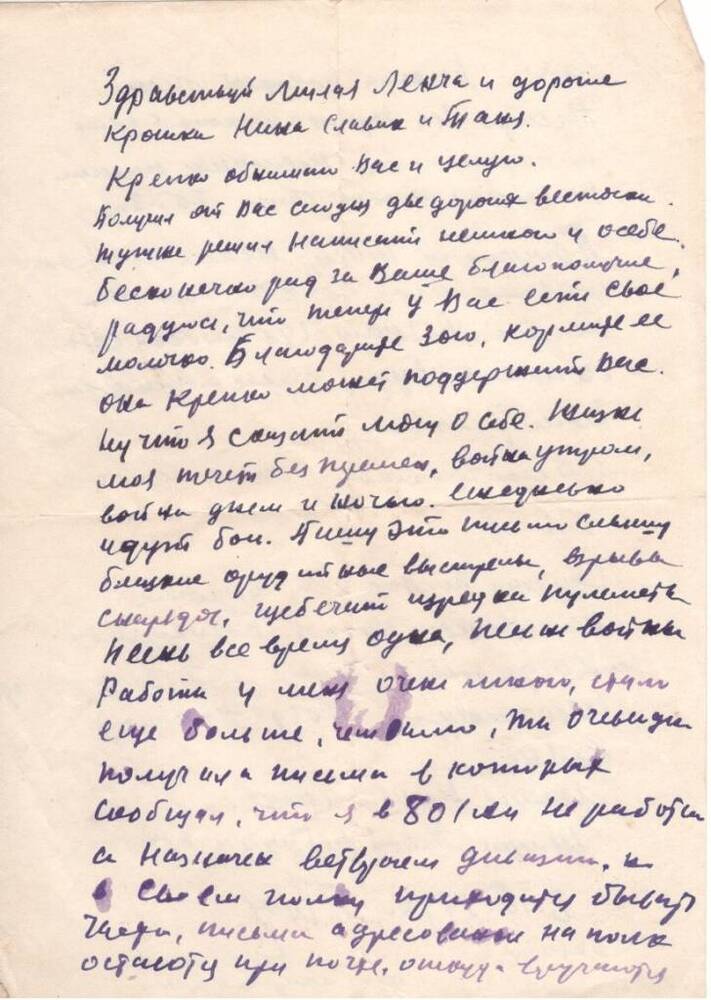 Здравствуй милая Ленча и дорогие
крошки Нина Славик и Таня.
Крепко обнимаю Вас и целую.
Получил от Вас сегодня две дорогих весточки.
Тут же решил написать немного и о себе.
Бесконечно рад за Ваше благополучие,
радуюсь, что теперь у Вас есть свое
молочко. Благодарите Зою, кормите ее
она крепко может поддержать Вас.
Ну что я сказать могу о себе. Жизнь
моя течет без перемен, война утром,
война днем и ночью. Ежедневно
идут бои. Пишу это письмо слышу
близкие орудийные выстрелы, взрывы
снарядов, щебечит изредка пулемет
Песнь все время одна, песнь войны
Работы у меня очень много, стало
еще больше, чем было, ты очевидно
получила письма в которых
сообщал, что я в 801 ап не работаю
а назначен ветврачем дивизии, и
в своем полку приходится бывать
письма адресованные на полк
остаются при почте, откуда вручаются